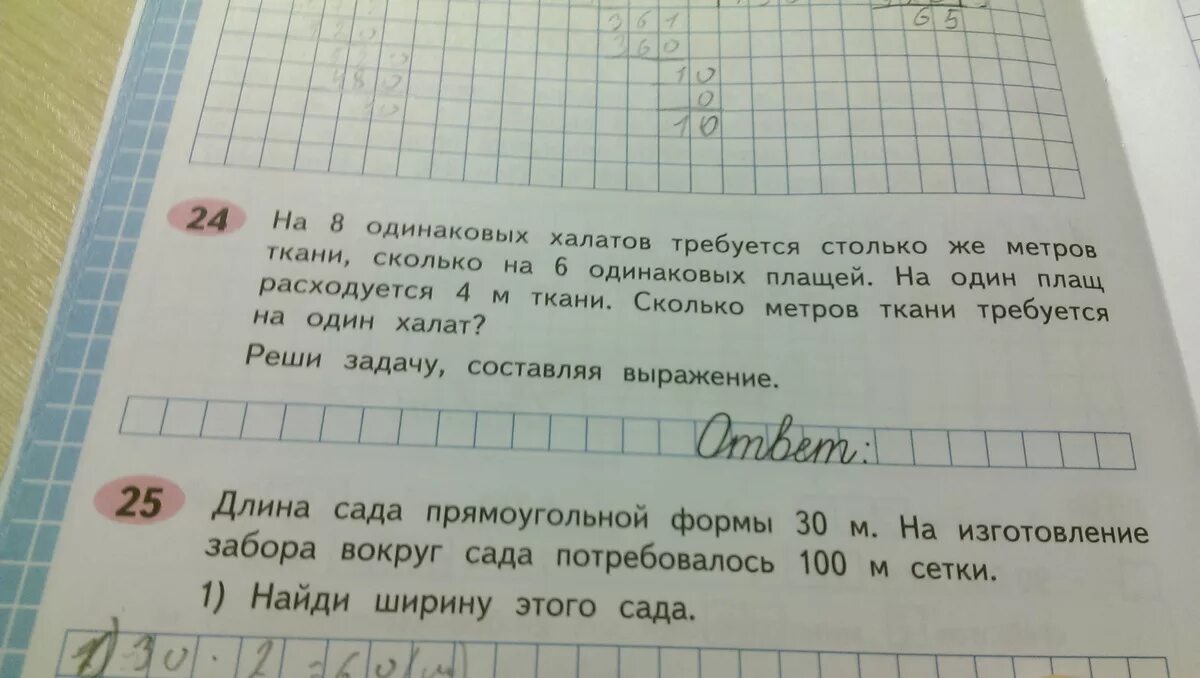 361
65
120
360
480
10
0
10
24 На 8 одинаковых халатов требуется столько же метров
ткани, сколько на 6 одинаковых плащей. На один плащ
расходуется 4 м ткани. Сколько метров ткани требуется
на один халат?
Реши задачу, составляя выражение.
Ответ:
25 Длина сада прямоугольной формы 30 м. На изготовление
забора вокруг сада потребовалось 100 м сетки.
1) Найди ширину этого сада.
1) 30 · 2 = 60 (м)